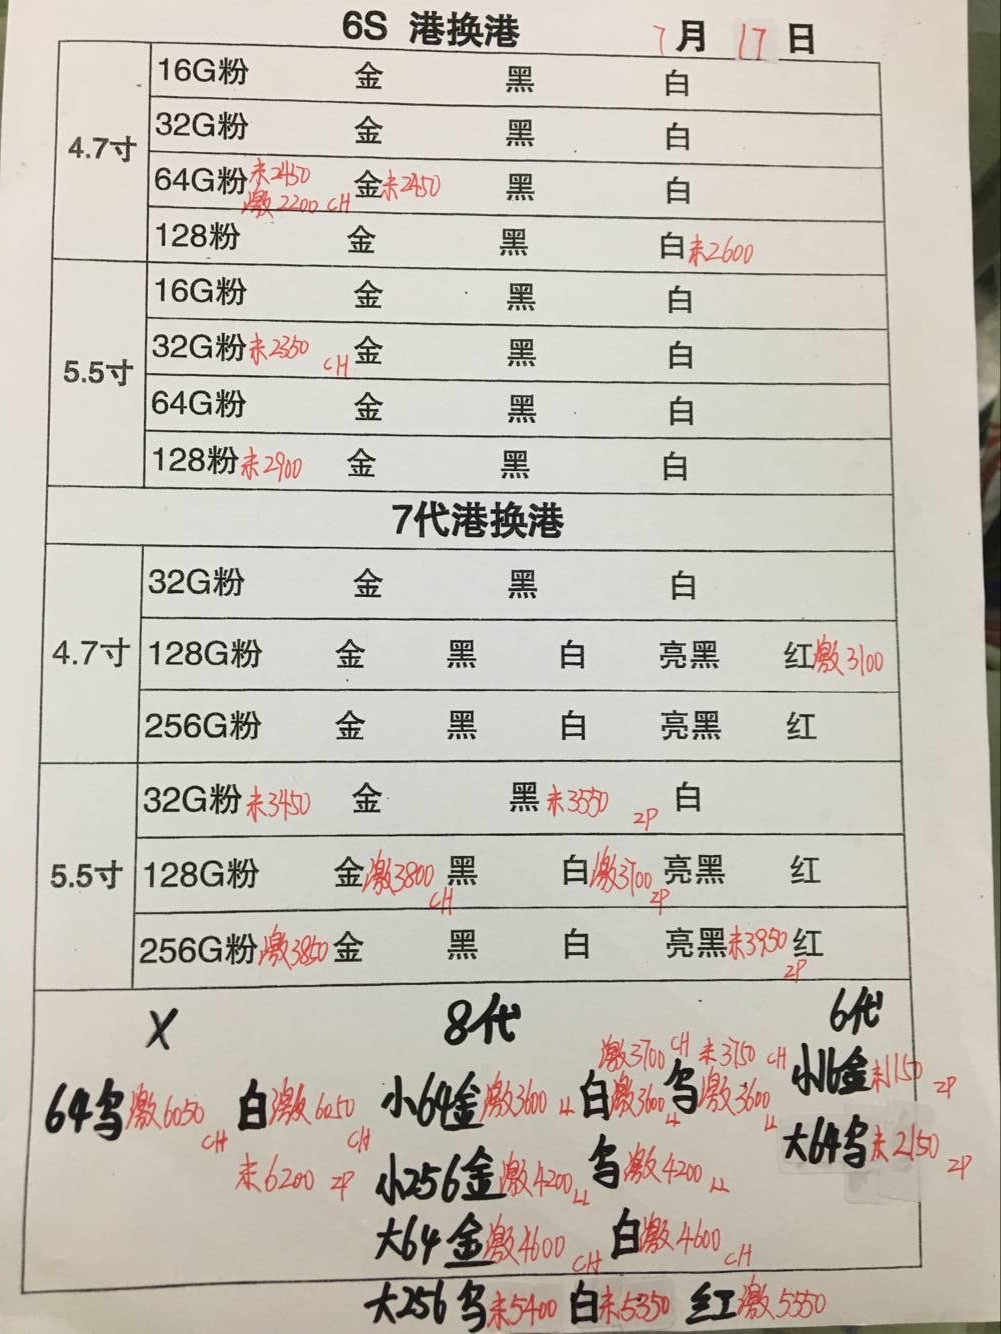 6S 港换港 7月17日
16G粉 金 黑 白
32G粉 金 黑 白
4.7寸
64G粉未2450 金未2450 黑 白
激2200 CH
128粉 金 黑 白未2600
16G粉 金 黑 白
32G粉未2350 CH 金 黑 白
5.5寸
64G粉 金 黑 白
128粉未2900 金 黑 白
7代港换港
32G粉 金 黑 白
4.7寸 128G粉 金 黑 白 亮黑 红激3100
256G粉 金 黑 白 亮黑 红
32G粉未3450 金 黑未3550 ZP 白
5.5寸 128G粉 金激3800 CH 黑 白激3700 ZP 亮黑 红
256G粉激3850 金 黑 白 亮黑未3950 ZP 红
X 8代 6代
激3700 CH 未3750 CH
64乌激6050 CH 白激6050 CH 小64金激3600 LL 白激3600 LL 乌激3600 LL 小16金未1150 ZP
未6200 ZP 小256金激4200 LL 乌激4200 LL 大64乌未2150 ZP
大64金激4600 CH 白激4600 CH
大256乌未5400 白未5350 红激5350